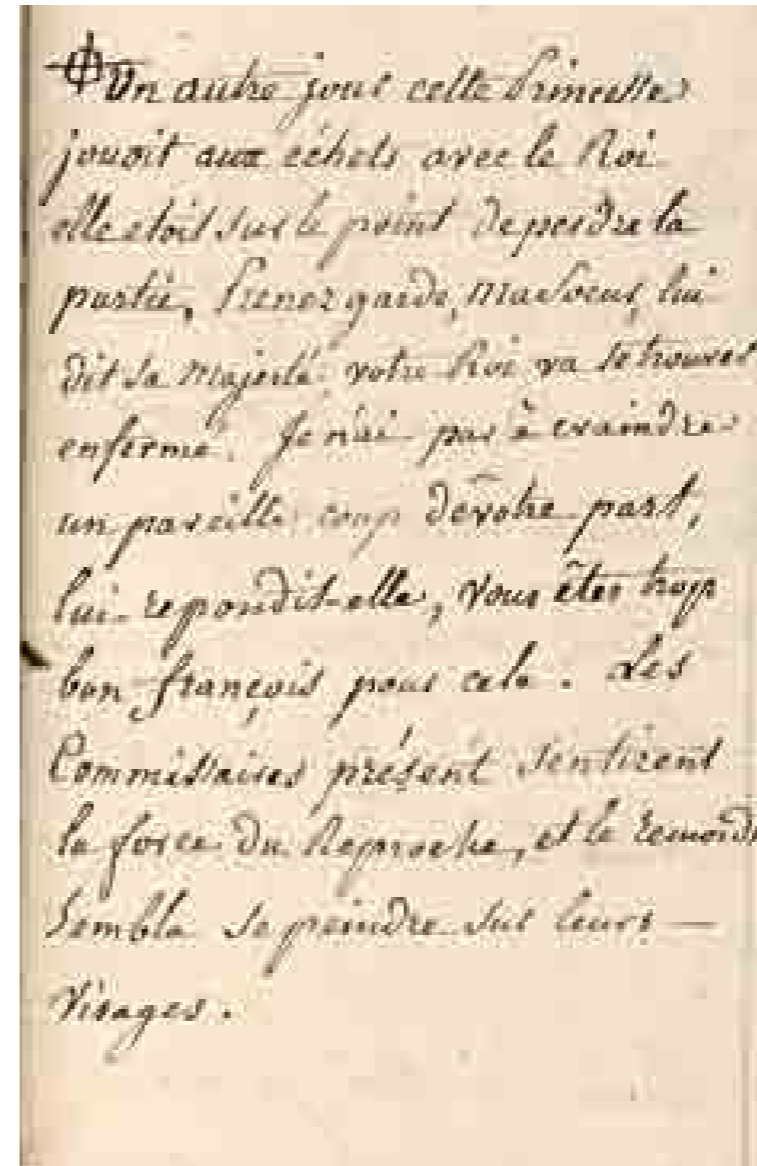 Un autre jour cette Princesse
jouoit aux échets avec le Roi
elle etoit sur le point de perdre la
partie, Prenez garde, ma soeur, lui
dit sa Majesté, votre Roi va se trouver
enfermé. Je n'ai pas à craindre
un pareille coup de votre part,
lui repondit-elle, vous êtes trop
bon françois pour cela. Les
Commissaires présent sentirent
la force du Reproche, et le remords
sembla se peindre sur leurs —
visages.